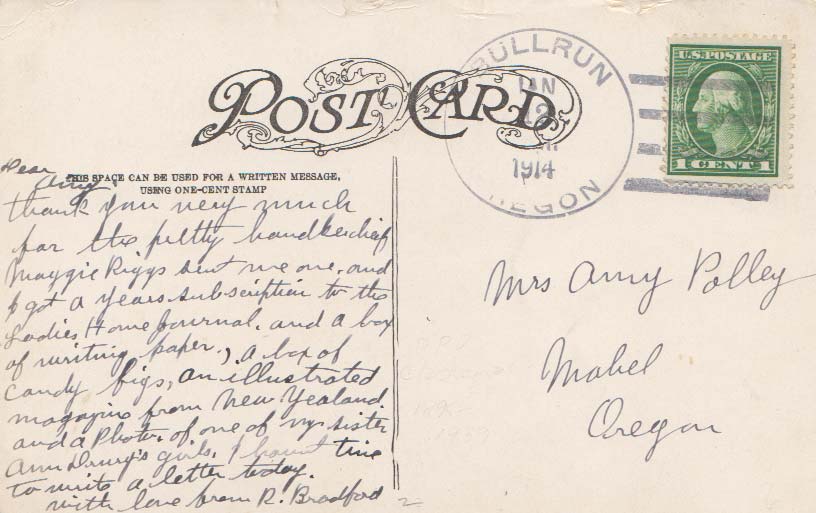 POST CARD
BULLRUN
JAN
12
1914
OREGON
U.S. POSTAGE
1 CENT 1
THIS SPACE CAN BE USED FOR A WRITTEN MESSAGE,
USING ONE-CENT STAMP
Dear
Amy.
Thank you very much
for the pretty handkerchief
Maggie Riggs sent me one, and
I got a years subscription to the
Ladies Home Journal. and a box
of writing paper., a box of
candy figs, an illustrated
magazine from New Zealand
and a Photo. of one of my sister
Ann Drury's girls. I havnt time
to write a letter today.
with love from R. Bradford
Mrs Amy Polley
Mabel
Oregon